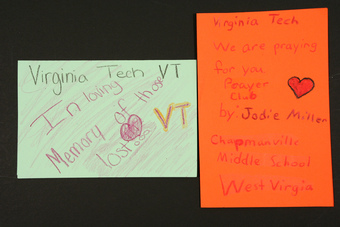 Virginia Tech VT
In loving
Memory of those
lost...
VT
Virginia Tech
We are praying
for you
Prayer
Club
by: Jodie Miller
Chapmanville
Middle School
West Virgia